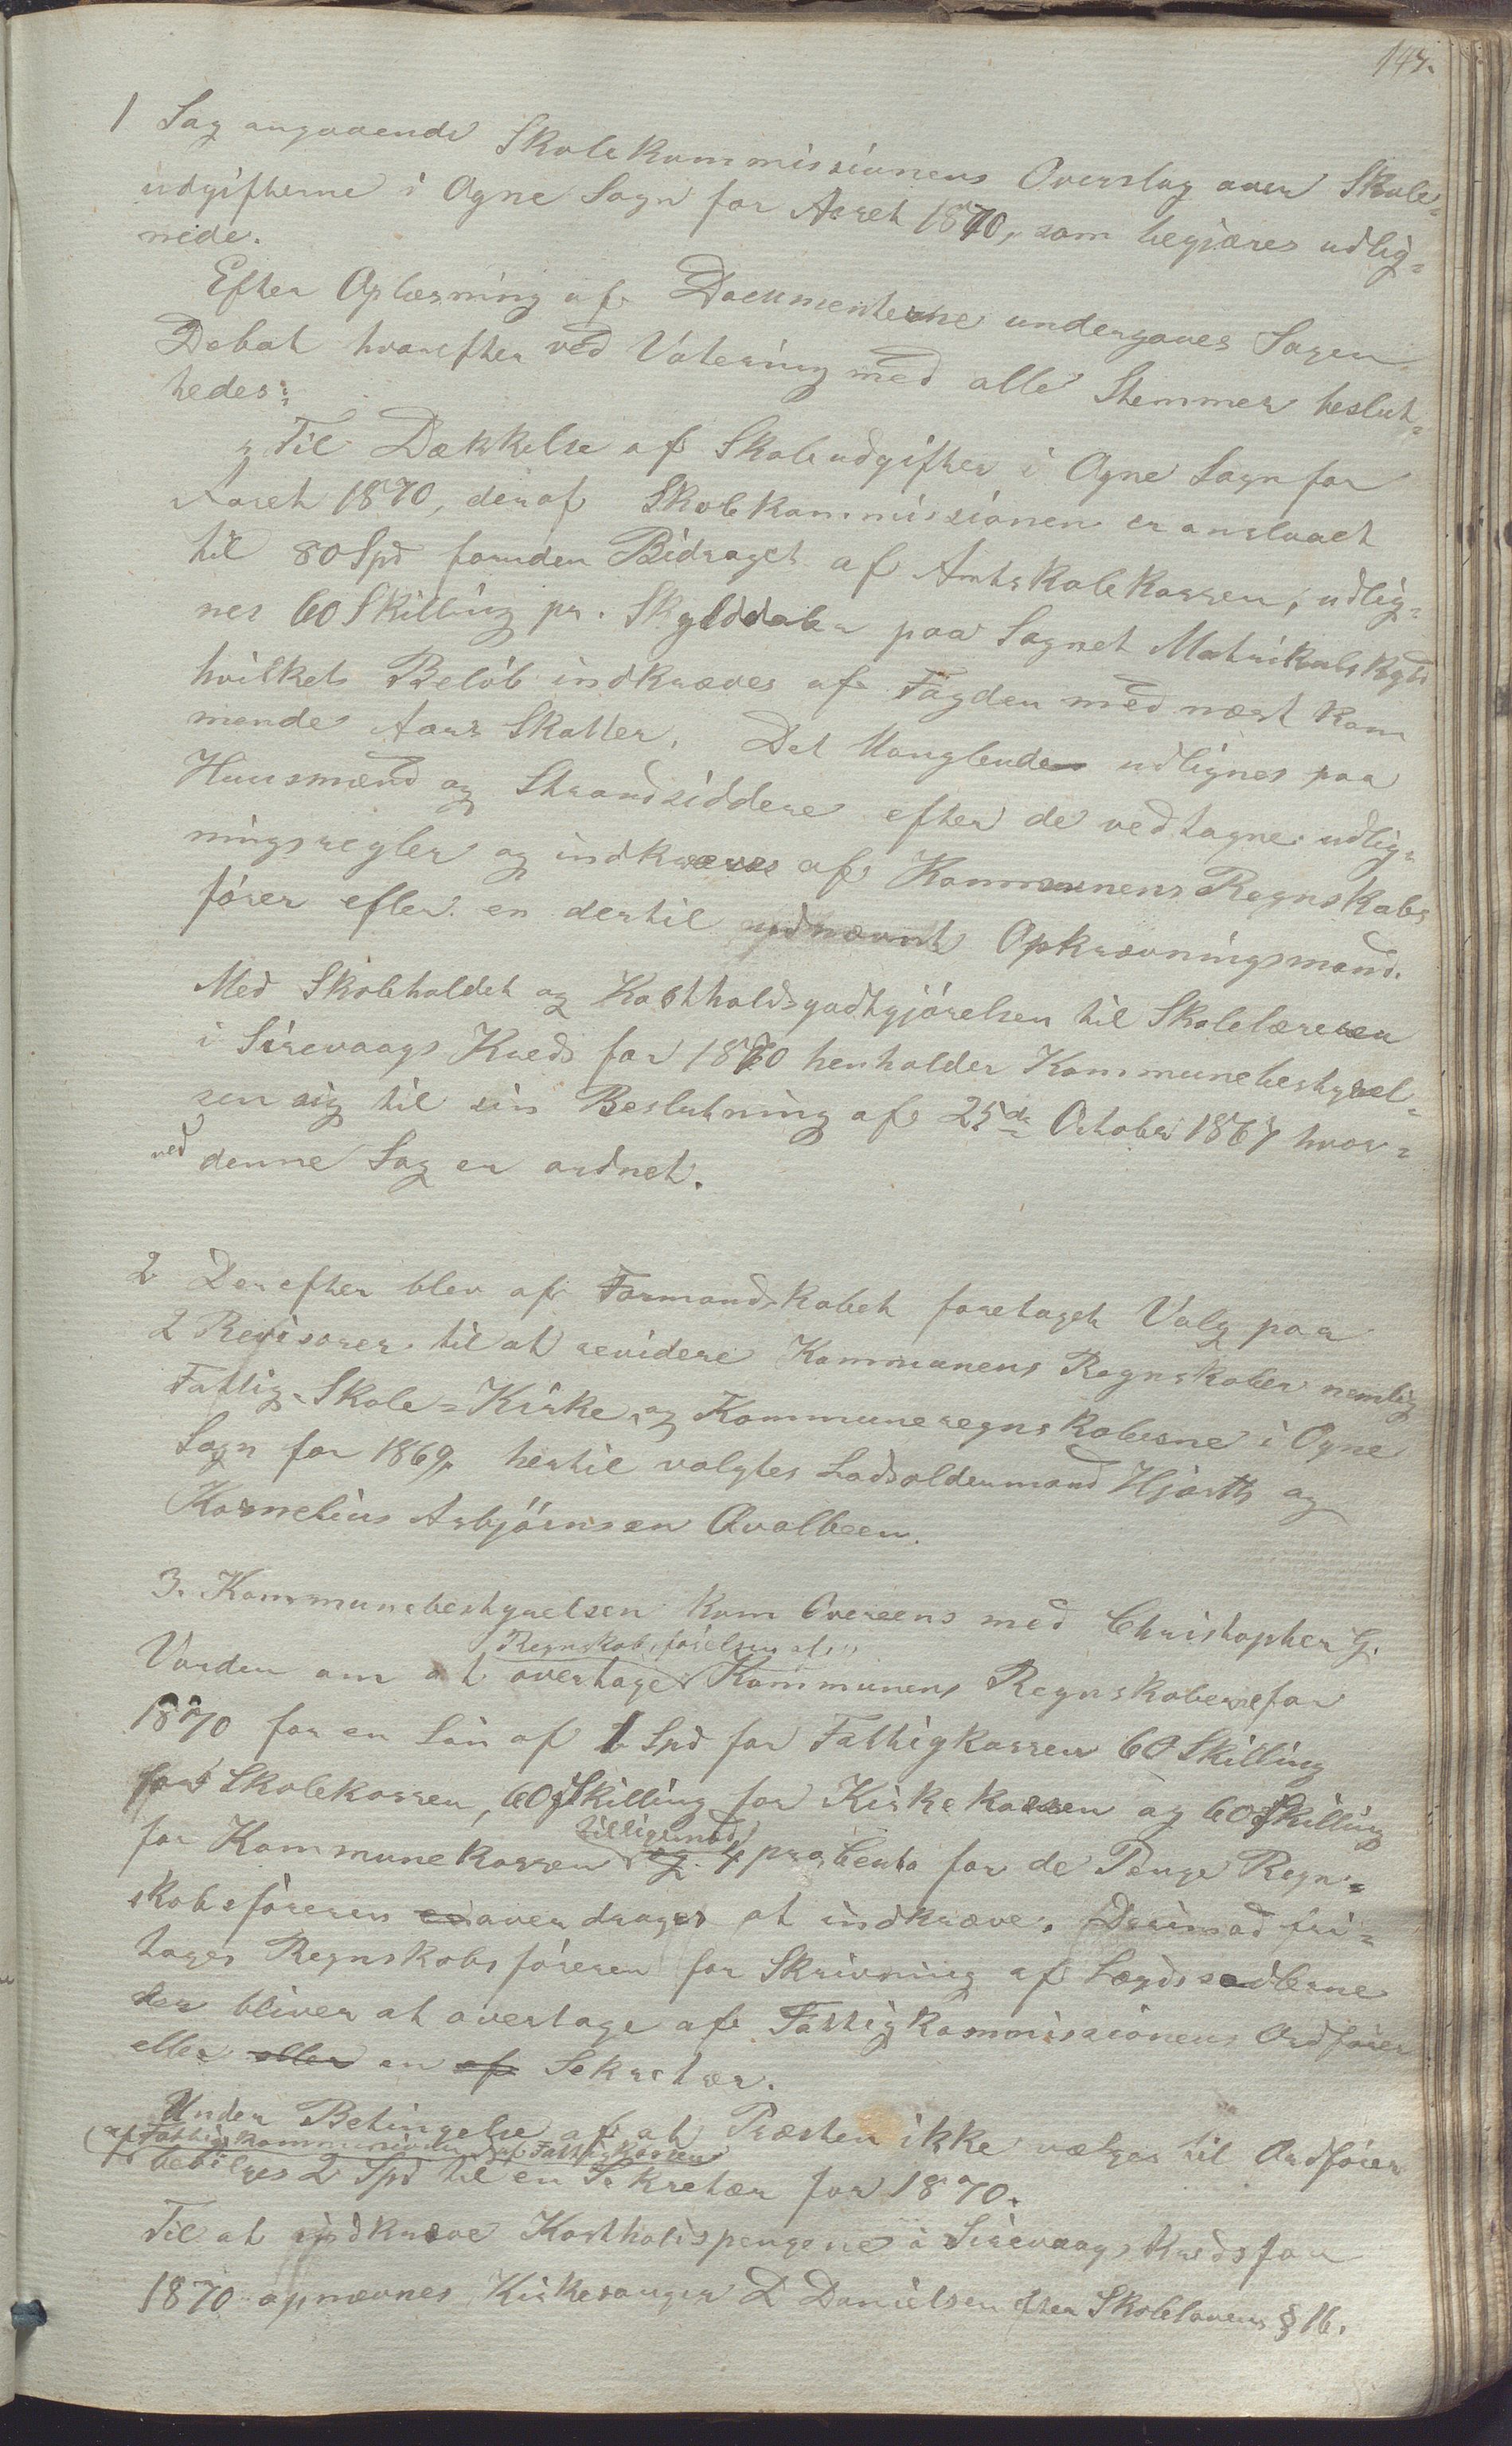 147.
1 Sag angaaende Skolekommissionens Overslag over Skole=
udgifterne i Ogne Sogn for Aaret 1870, som begjæres udlig=
nede.
Efter Oplæsning af Documenterne undergaves Sagen
Debat hvorefter ved Votering med alle Stemmer beslut=
tedes:
"Til Dækkelse af Skoleudgifter i Ogne Sogn for
Aaret 1870, der af Skolekommissionen er anslaaet
til 80 Spd foruden Bidraget af Amtskolekassen, udlig=
nes 60 Skilling pr. Skylddaler paa Sognet Matrikulskyld
hvilket Beløb indkræves af Fogden med næst kom
mende Aars Skatter. Det Manglende udlignes paa
Huusmænd og Strandsiddere efter de vedtagne udlig=
ningsregler og indkræves af Kommunens Regnskabs
fører eller en dertil udnævnt Opkrævningsmand.
Med Skoleholdet og Kostholdsgodtgjørelsen til Skolelæreren
i Sirevaags Kreds for 1870 henholder Kommunebestyrel=
sen sig til sin Beslutning af 25de October 1867 hvor=
ved denne Sag er ordnet.
2 Derefter blev af Formandskabet foretaget Valg paa
2 Revisorer til at revidere Kommunens Regnskaber nemlig
Fattig- Skole= Kirke og Kommuneregnskaberne i Ogne
Sogn for 1869. hertil valgtes Lodsoldermand Hjorth og
Kornelius Asbjørnsen Qvalbeen.
3. Kommunebestyrelsen kom Overeens med Christopher G.
Regnskabsførelsen af
Varden om at overtage Kommunens Regnskaberne for
1870 for en Løn af 1 Spd for Fattigkassen 60 Skilling
for Skolekassen, 60 Skilling for Kirkekassen og 60 Skilling
tilligemed
for Kommunekassen og 4 pro Cento for de Penge Regn=
skabsføreren er overdrages at indkræve. Derimod fri=
tages Regnskabsføreren for Skrivning af Lægdssedlerne
der bliver at overtage af Fattigkommissionens Ordfører
eller eller en af Sekretær.
Under Betingelse af at Præsten ikke vælges til Ordfører
af Fattigkommissionen af Fattigkassen
bevilges 2 Spd til en Sekretær for 1870.
Til at indkræve Kostholdspengene i Sirevaags Kreds for
1870 opnævnes Kirkesanger D Danielsen efter Skolelovens § 16.